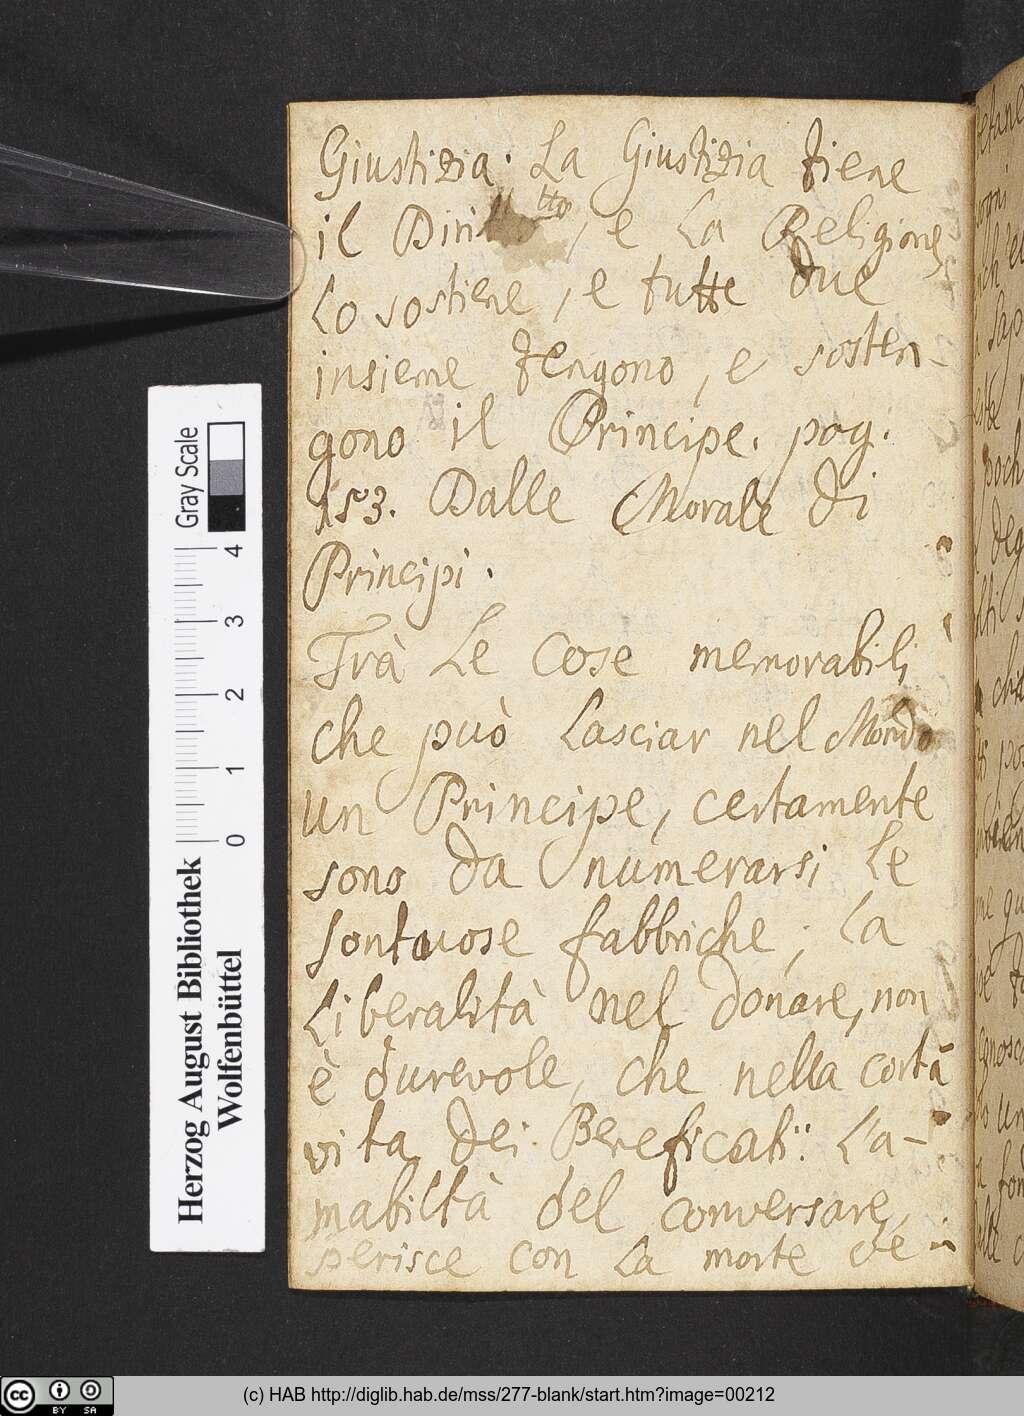 Giustizia. La Giustizia tiene
il Diritto, e La Religione
Lo sostiene, e tutte due
insieme tengono, e sosten-
gono il Principe. pag.
153. Dalle Morale di
Principi.
Trà Le cose memorabili
che può Lasciar nel Mondo
un Principe, certamente
sono da numerarsi Le
sontuose fabbriche; La
Liberalità nel donare, non
è durevole, che nella corta
vita dei Beneficati: L'a-
mabiltà del conversare,
perisce con La morte de
Gray Scale
4
3
2
1
0
Herzog August Bibliothek
Wolfenbüttel
cc BY SA
(c) HAB http://diglib.hab.de/mss/277-blank/start.htm?image=00212